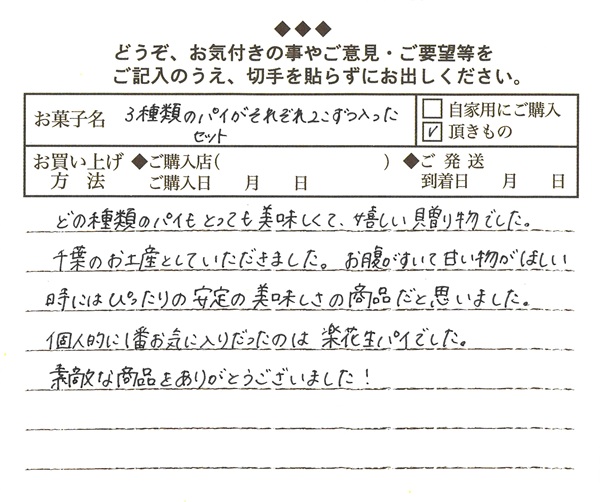 ◆◆◆
どうぞ、お気付きの事やご意見・ご要望等を
ご記入のうえ、切手を貼らずにお出しください。
お菓子名 3種類のパイがそれぞれ2こずつ入った
セット
□ 自家用にご購入
☑ 頂きもの
お買い上げ方法 ◆ご購入店( ) ◆ご発送
ご購入日 月 日 到着日 月 日
どの種類のパイもとっても美味しくて、嬉しい贈り物でした。
千葉のお土産としていただきました。お腹がすいて甘い物がほしい
時にはぴったりの安定の美味しさの商品だと思いました。
個人的に1番お気に入りだったのは楽花生パイでした。
素敵な商品をありがとうございました!